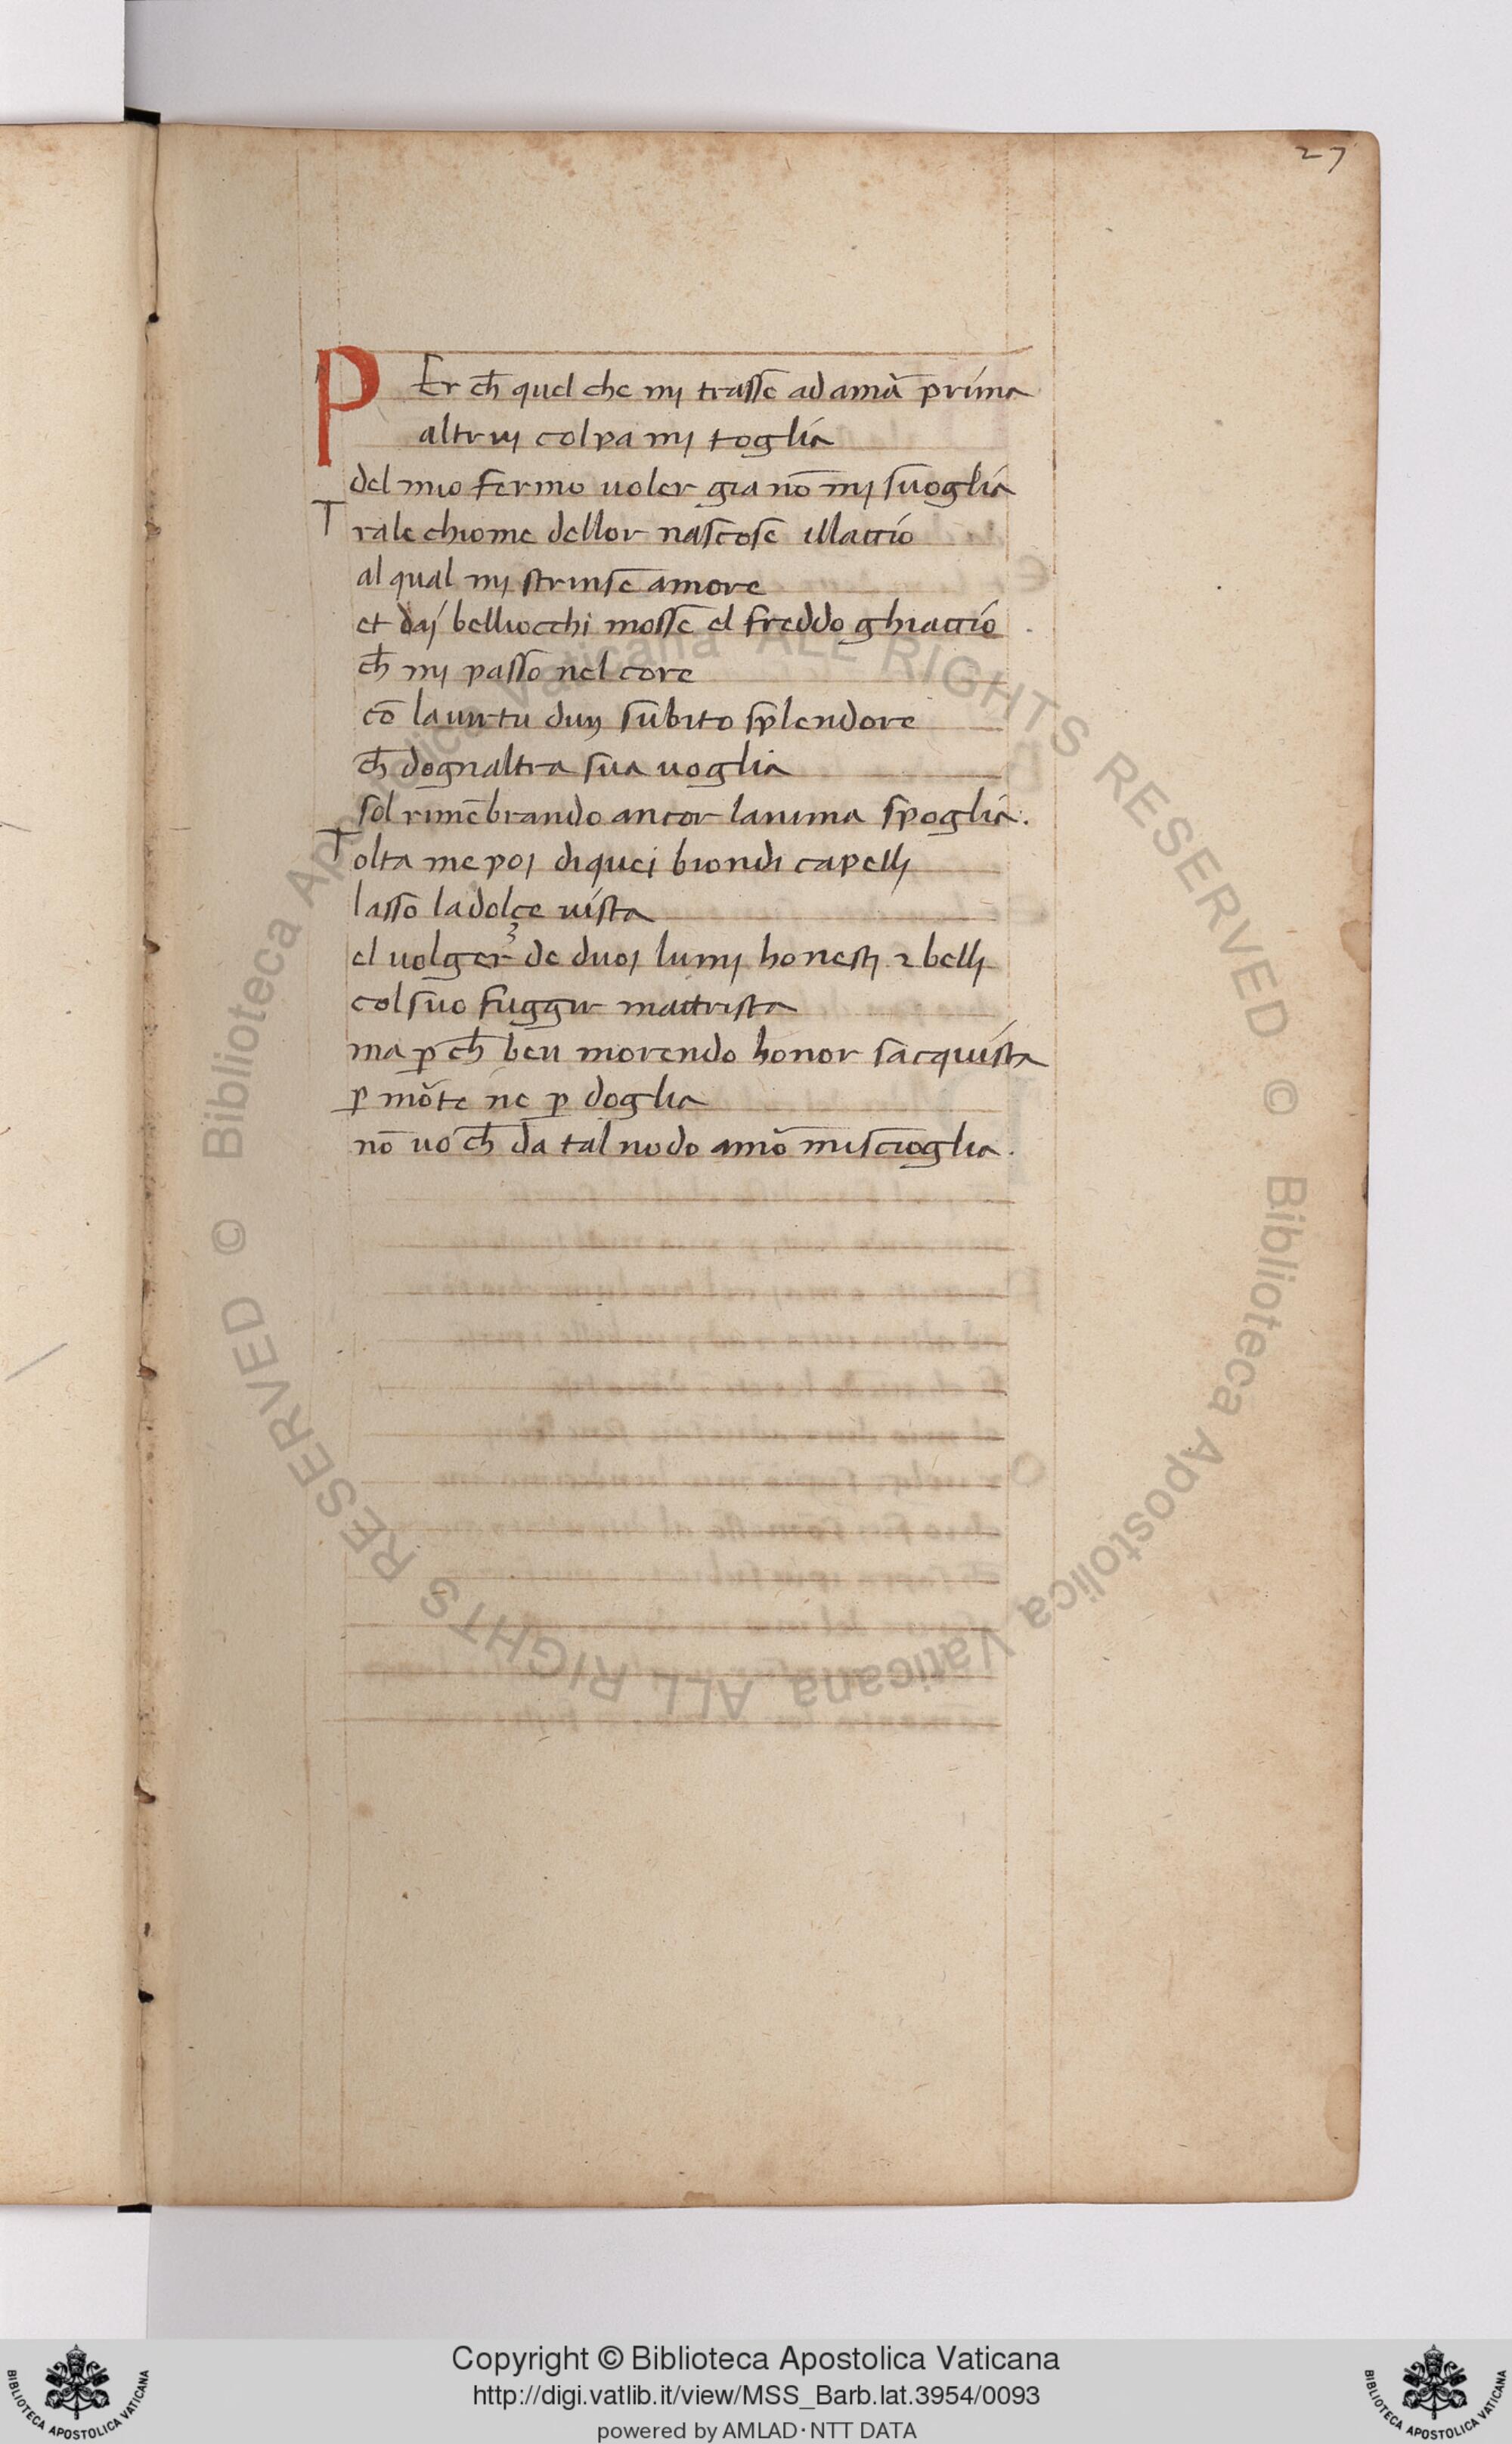 27
PEr ch̄ quel che mj trasse ad amā prima
altruj colpa mj toglia
del mio fermo uoler gia nō mj suoglia
Trale chiome dellor nascose illaccio
al qual mj strinse amore
et daj belliocchi mosse el freddo ghiaccio .
ch̄ mj passo nel core
cō lauirtu dun subito splendore
ch̄ dognaltra sua uoglia
sol rimēbrando ancor lanima spoglia.
Tolta me poj diquei biondi capellj
lasso ladolçe uista
el uolger de duoj lumj honestj ⁊ bellj
col suo fuggir mattrista
ma p̱ ch̄ ben morendo honor sacquista
p̱ mōte ne p̱ doglia
nō uo ch̄ da tal nodo amō miscioglia.
© Biblioteca Apostolica Vaticana ALL RIGHTS RESERVED © Biblioteca Apostolica Vaticana ALL RIGHTS RESERVED
BIBLIOTECA APOSTOLICA VATICANA
Copyright © Biblioteca Apostolica Vaticana
http://digi.vatlib.it/view/MSS_Barb.lat.3954/0093
powered by AMLAD·NTT DATA
BIBLIOTECA APOSTOLICA VATICANA